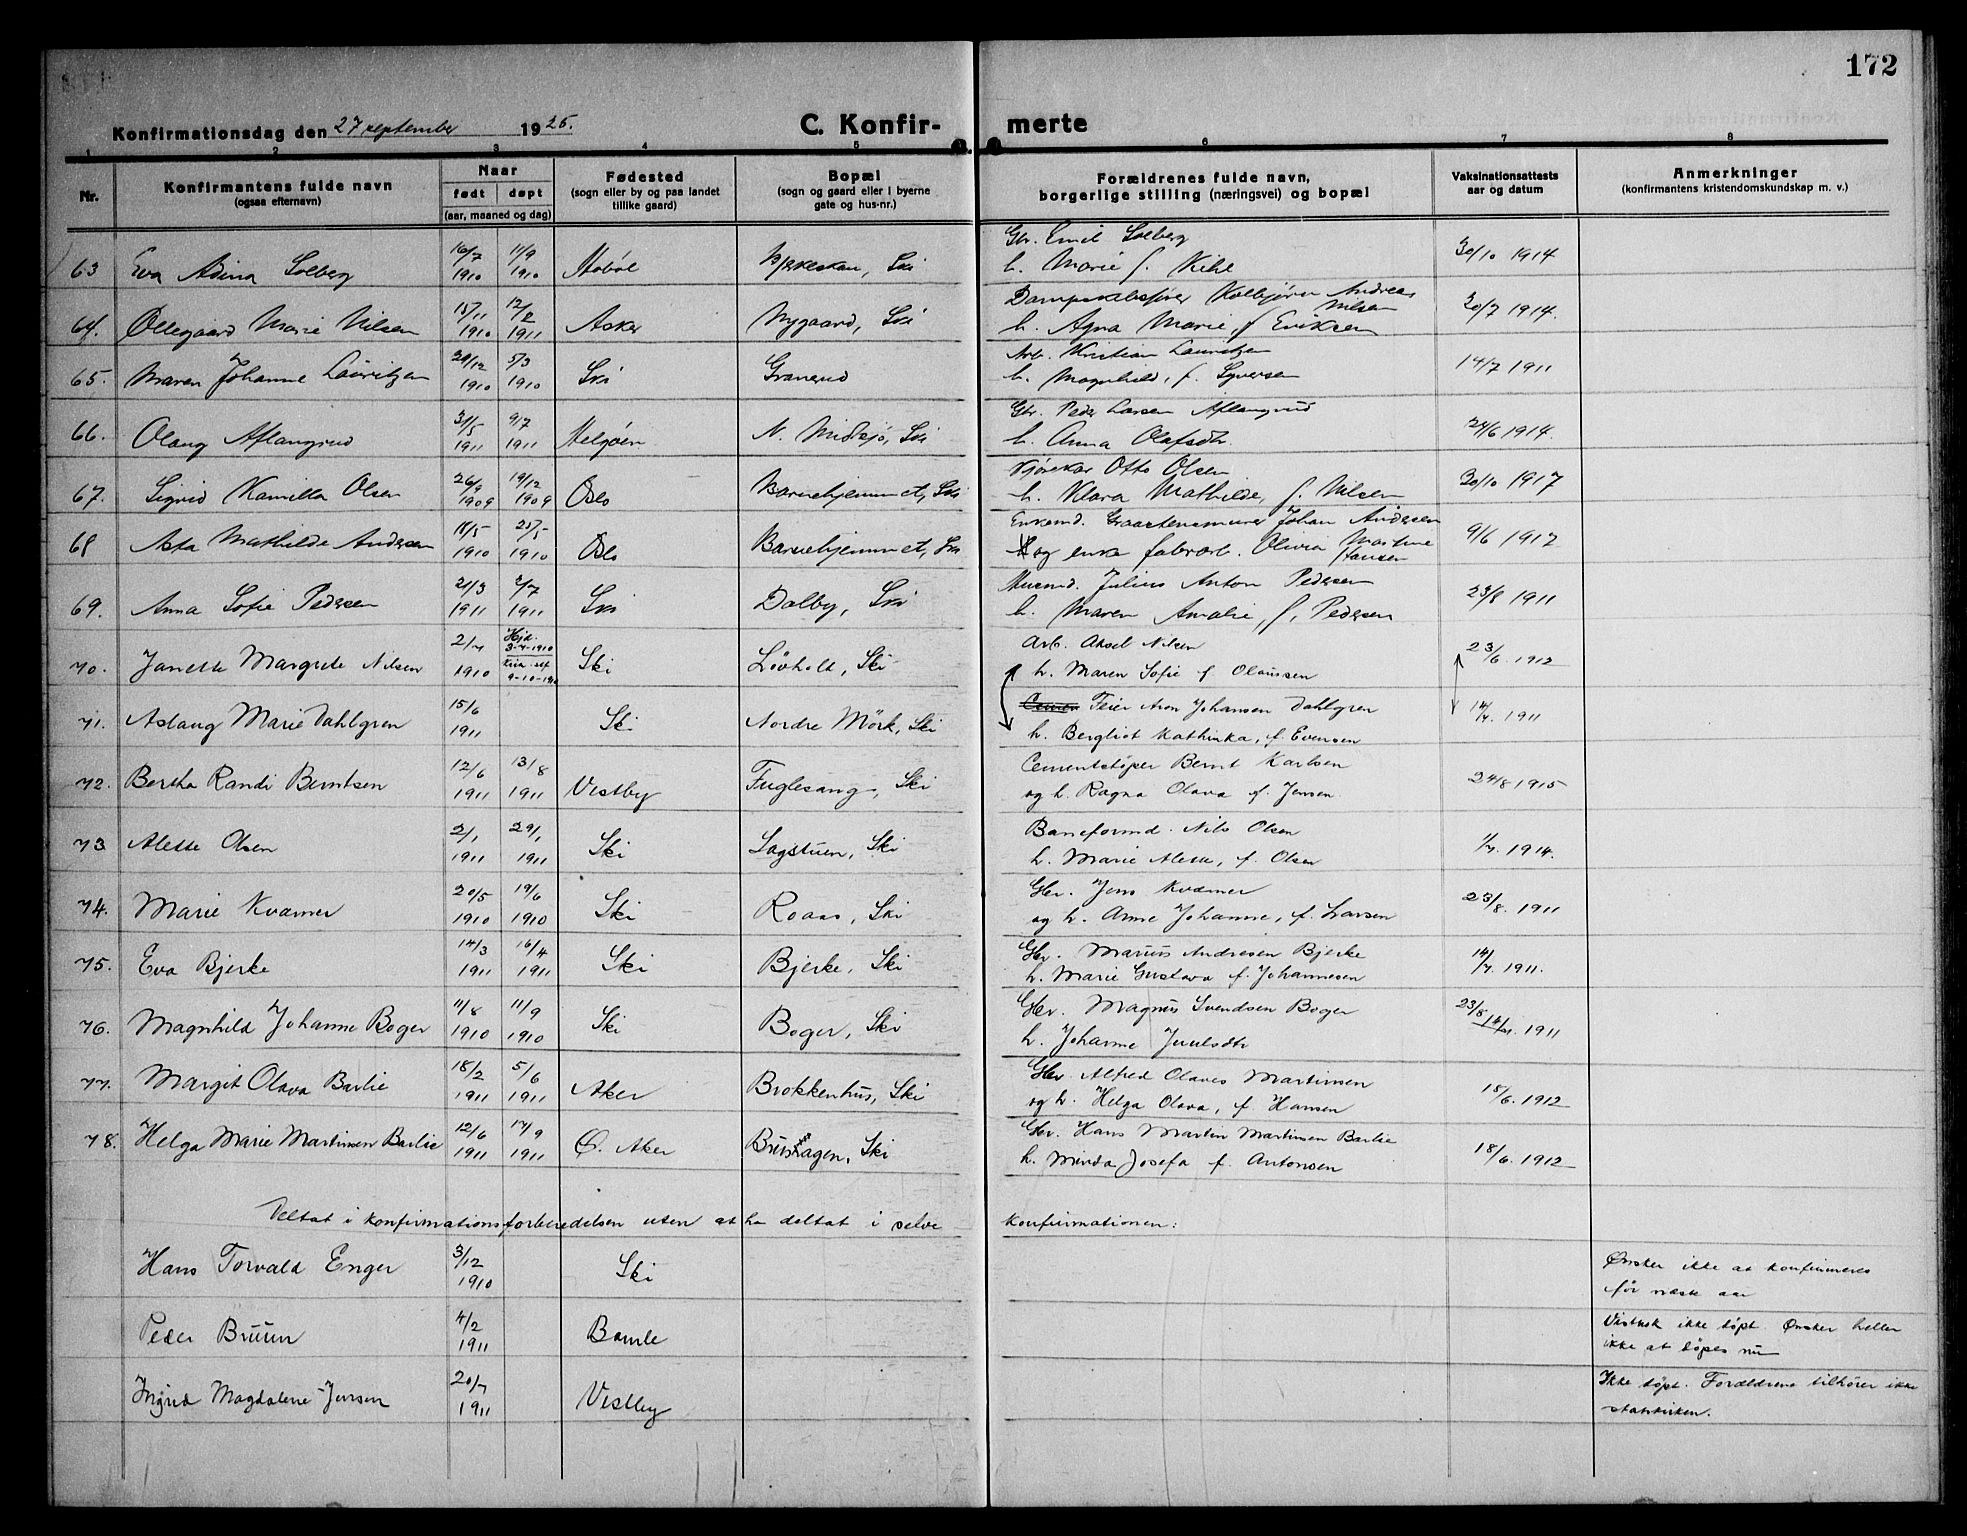 172
Konfirmationsdag den 27 september 1925. C. Konfir- merte
1 2 3 4 5 6 7 8
Nr. Konfirmantens fulde navn (ogsaa efternavn) Naar født døpt (aar, maaned og dag) Fødested (sogn eller by og paa landet tillike gaard) Bopæl (sogn og gaard eller i byerne gate og hus-nr.) Forældrenes fulde navn, borgerlige stilling (næringsvei) og bopæl Vaksinationsattests aar og datum Anmerkninger (konfirmantens kristendomskundskap m. v.)
63 Eva Adina Solberg 16/7 1910 11/9 1910 Hobøl Ski Gbr. Emil Solberg
h. Marie f. Kihl 30/10 1914
64. Ollegaard Marie Nilsen 15/11 1910 12/2 1911 Asker Nygaard, Ski Kolbjørn Andreas Nilsen
h. Agna Marie, f. Eriksen 30/7 1914.
65. Maren Johanne Lauritzen 1910 5/3 1910 Ski Granerud Arb. Kristian Lauritzen
h. Magnhild, f. Syversen 14/7 1911
66. Olaug Aflangrud 31/5 1911 9/7 1911 Helgøen N. Midsjø, Ski Gbr. Peder Larsen Aflangrud
h. Anna Olafsdtr. 24/6 1914.
67. Sigrid Kamilla Olsen 1909 19/12 1909 Oslo Barnehjemmet, Ski Kjørekar Otto Olsen
h. Klara Mathilde, f. Nilsen 30/10 1917
68 Asta Mathilde Andersen 18/5 1910 1910 Oslo Barnehjemmet, Ski Enkemd. Johan Andersen
og enke fabrarb. Olivia Martine Hansen 9/6 1917
69. Anna Sofie Pedersen 21/3 1911 2/7 1911 Ski Dalby, Ski Murmd. Julius Anton Pedersen
h. Maren Amalie, f. Pedersen 23/8 1911
70. Janette Margrete Nilsen 2/7 1910 Hjd. 3-7-1910 9-10-1910 Ski Løvholt, Ski Arb. Aksel Nilsen
h. Maren Sofie f Olaussen 23/6. 1912
71. Aslaug Marie Dahlgren 15/6 1911 Ski Nordre Mörk, Ski Feier Aron Johansen Dahlgren
h. Bergliot Kathinka, f. Evensen 14/7. 1911
72. Bertha Randi Berntsen 12/6 1911 13/8 1911 Vestby Fuglesang, Ski Cementstøper Bernt Karlsen
og h. Ragna Olava f. Jensen 24/8 1915
73 Alette Olsen 2/1 1911 29/1 1911 Ski Sagstuen, Ski Baneformd. Nils Olsen
h. Marie Alette, f. Olsen 1/7. 1914.
74. Marie Kværner 20/5 1910 19/6 1910 Ski Roaas, Ski Gbr. Jens Kværner
og h. Anne Johanne, f. Larsen 23/8. 1911
75. Eva Bjerke 14/3 1911 16/4 1911 Ski Bjerke, Ski Gbr. Marius Andresen Bjerke
h. Marie Gustava f. Johannesen 14/7. 1911.
76. Magnhild Johanne Boger 11/8 1910 11/9 1910 Ski Boger, Ski Gbr. Magnus Svendsen Boger
h. Johanne Juulsdtr 23/8 1911
77. Margit Olava Barlie 18/2 1911 5/6 1911 Aker Brokkenhus, Ski Gbr Alfred Olaves Martinsen
og h. Helga Olava, f Hansen 18/6. 1912
78. Helga Marie Martinsen Barlie 12/6 1911 17/9 1911 Ø. Aker Ski Gbr. Hans Martin Martinsen Barlie
h. Minda Josefa f. Antonsen 18/6. 1912
Deltat i konfirmationsforberedelsen uten at ha deltat i selve konfirmationen:
Hans Torvald Enger 3/12 1910 Ski Ønsker ikke at konfirmeres
før næste aar
Peder Bruun 4/2 1911 Bamle Vistnok ikke døpt. Ønsker heller
ikke at døpes nu
Ingrid Magdalene Jensen 20/7 1911 Vestby Ikke døpt. Forældrene tilhører ikke
statskirken.